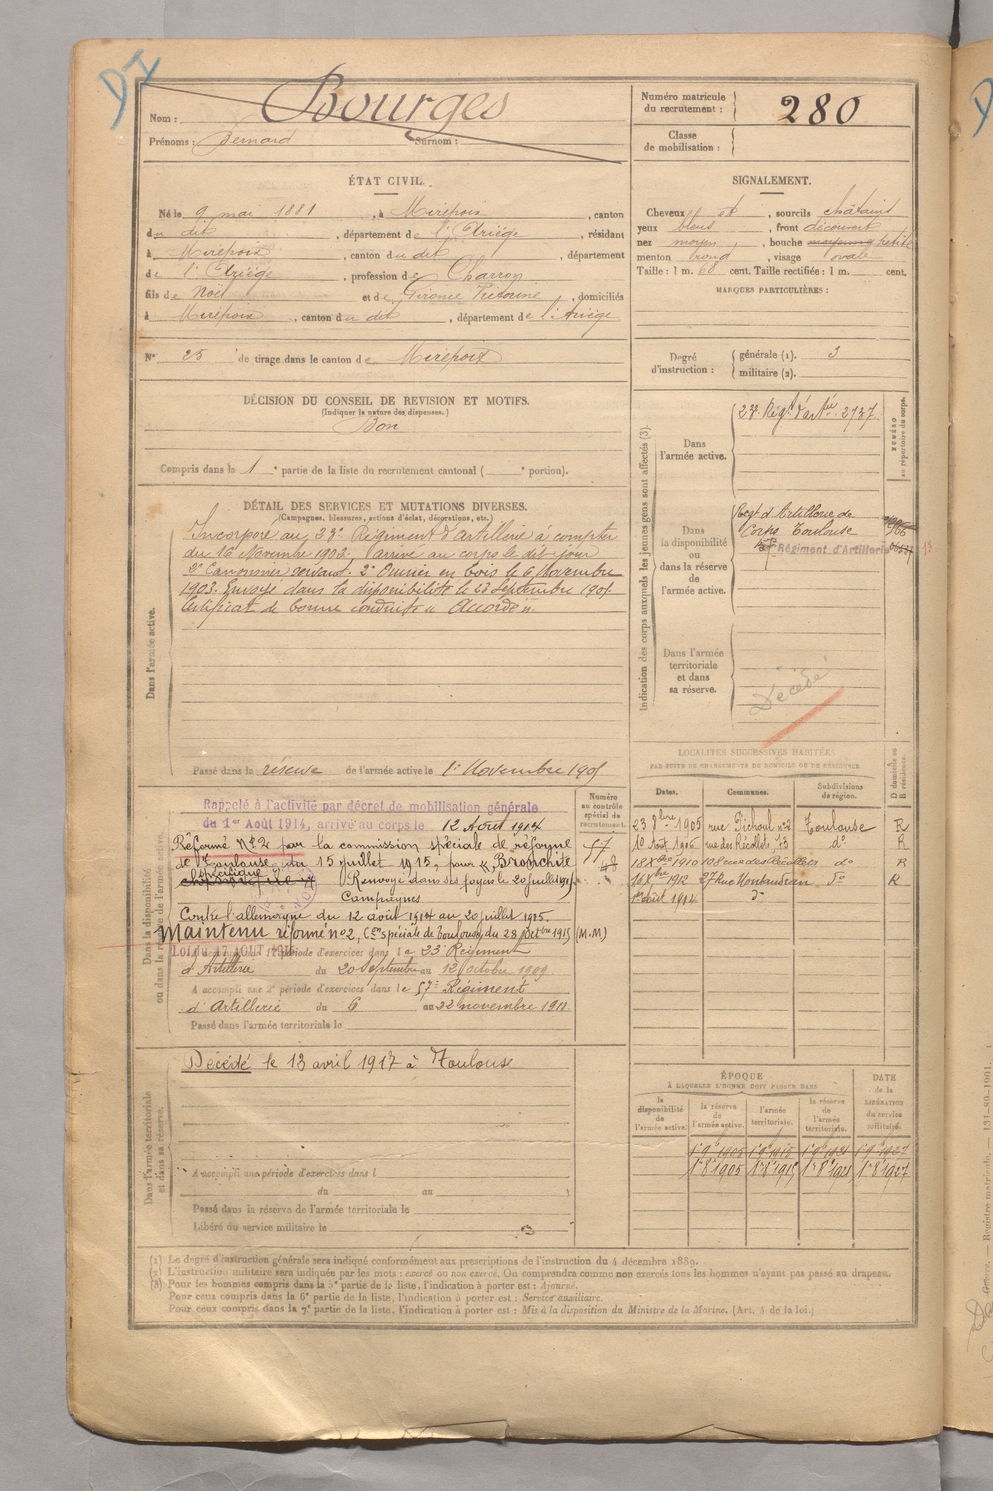 DI
Nom : Bourges
Prénoms : Bernard Surnom :
Numéro matricule du recrutement : 280
Classe de mobilisation :
ÉTAT CIVIL.
Né le 9 mai 1881, à Mirepoix, canton
du dit, département de l'Ariège, résidant
à Mirepoix, canton du dit, département
de l'Ariège, profession de Charron
fils de Noël et de Victorine, domiciliés
à Mirepoix, canton du dit, département de l'Ariège
N° 25 de tirage dans le canton de Mirepoix
SIGNALEMENT.
Cheveux et, sourcils châtains
yeux bleus, front découvert
nez moyen, bouche moyenne petite
menton rond, visage ovale
Taille : 1 m. 68 cent. Taille rectifiée : 1 m. cent.
MARQUES PARTICULIÈRES :
Degré d'instruction : générale (1). 3
militaire (2).
DÉCISION DU CONSEIL DE REVISION ET MOTIFS.
(Indiquer la nature des dispenses.)
Bon
Compris dans la 1e partie de la liste du recrutement cantonal ( e portion).
DÉTAIL DES SERVICES ET MUTATIONS DIVERSES.
(Campagnes, blessures, actions d'éclat, décorations, etc.)
Dans l'armée active.
Incorporé au 23e Régiment d'artillerie à compter
du 16 Novembre 1902, arrivé au corps le dit jour
2e Canonnier servant. 2e Ouvrier en bois le 6 Novembre
1903. Envoyé dans la disponibilité le 23 Septembre 1905.
Certificat de bonne conduite "Accordé".
Passé dans la réserve de l'armée active le 1er Novembre 1905
Indication des corps auxquels les jeunes gens sont affectés (3).
NUMÉRO au répertoire du corps.
Dans l'armée active.
23e Régt d'artie 2737
Dans la disponibilité ou dans la réserve de l'armée active.
Regt d'Artillerie de
Corps Toulouse
57e Régiment d'Artillerie
Dans l'armée territoriale et dans sa réserve.
Décédé
LOCALITÉS SUCCESSIVES HABITÉES
PAR SUITE DE CHANGEMENTS DE DOMICILE OU DE RÉSIDENCE.
Dates. Communes. Subdivisions de région. D domicile ou R résidence.
23 8bre 1905 rue Pichoul n°2 Toulouse R
10 Août 1906 rue des Récollets, 73 d° R
18 Xbre 1910 108 rue des Récollets d° R
16 Xbre 1912 27 Rue Montaudran d° R
1er août 1914 d°
Dans la disponibilité ou dans la réserve de l'armée active.
Numéro au contrôle spécial du recrutement.
Rappelé à l'activité par décret de mobilisation générale
du 1er Août 1914, arrivé au corps le 12 Août 1914
Réformé N° 2 par la commission spéciale de réforme
de Toulouse du 15 juillet 1915, pour "Bronchite
spécifique" Renvoyé dans ses foyers le 20 juillet 1915
Campagnes
Contre l'allemagne du 12 août 1914 au 20 juillet 1915.
Maintenu réformé n°2, (Con spéciale de Toulouse, du 28 octbre 1915 (M.M)
Loi du 17 AOUT 1915 période d'exercices dans le 23e Régiment
d'Artillerie du 20 Septembre au 12 octobre 1909
A accompli une 2e période d'exercices dans le 57e Régiment
d'Artillerie du 6 au 22 novembre 1911
Passé dans l'armée territoriale le
Dans l'armée territoriale et dans sa réserve.
Décédé le 13 avril 1917 à Toulouse
A accompli une période d'exercices dans l
du au
Passé dans la réserve de l'armée territoriale le
Libéré du service militaire le
ÉPOQUE
À LAQUELLE L'HOMME DOIT PASSER DANS
DATE de la LIBÉRATION du service militaire.
la disponibilité de l'armée active. la réserve de l'armée active. l'armée territoriale. la réserve de l'armée territoriale.
1er 8e 1905 1er 8e 1915 1er 8e 1921 1er 8e 1927
(1) Le degré d'instruction générale sera indiqué conformément aux prescriptions de l'instruction du 4 décembre 1889.
(2) L'instruction militaire sera indiquée par les mots : exercé ou non exercé. On comprendra comme non exercés tous les hommes n'ayant pas passé au drapeau.
(3) Pour les hommes compris dans la 5e partie de la liste, l'indication à porter est : Ajourné.
Pour ceux compris dans la 6e partie de la liste, l'indication à porter est : Service auxiliaire.
Pour ceux compris dans la 7e partie de la liste, l'indication à porter est : Mis à la disposition du Ministre de la Marine. (Art. 4 de la loi.)